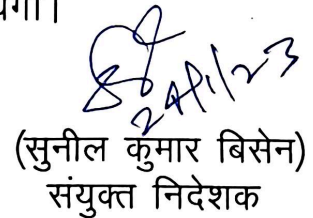 24/1/23
(सुनील कुमार बिसेन)
संयुक्त निदेशक